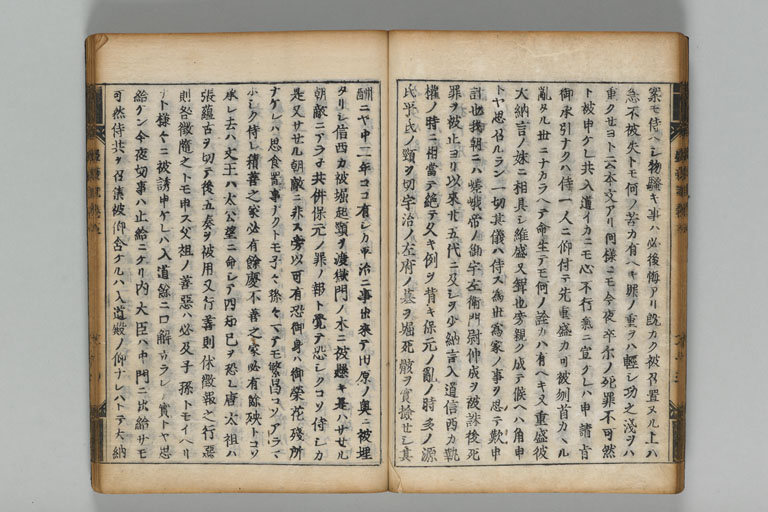 案モ侍ヘシ物騒キ事ハ必後悔アリ既カク被召置ヌル上ハ
急不被失トモ何ノ苦カ有ヘキ罪ノ重ヲハ輕シ功之淺ヲハ
重クセヨト云本文アリ何様ニモ今夜卒尓ノ死罪不可然
ト被申ケレ共入道イカニモ心不行氣ニ宣クレハ申請旨
御承引ナクハ侍一人ニ仰付テ先重盛カ可被刎首カヽル
亂タル世ニナカラヘテ命生テモ何ノ詮カハ有ヘキ又重盛彼
大納言ノ妹ニ相具シ維盛又聟也旁親ク成テ候ヘハ角申
トヤ思召ルラン一切其儀ハ侍ス爲世爲家ノ事ヲ思テ歎申
計也我朝ニハ嵯峨帝ノ御宇左衛門尉仲成ヲ被誅後死
罪ヲ被止ヨリ以來廿五代ニ及シヲ少納言入道信西カ執
權ノ時ニ相當テ絶テ久キ例ヲ背キ保元ノ亂ノ時多ノ源
氏平氏ノ頸ヲ切宇治ノ左府ノ墓ヲ堀死骸ヲ實撿セシ其
酬ニヤ中二年コソ有シカ平治ニ事出來テ田原ノ奥ニ被埋
タリシ信西カ被堀起頸ヲ渡獄門ノ木ニ被懸キ是ハサセル
朝敵ニアラネ共併保元ノ罪ノ報ト覺テ恐シクコソ侍シカ
是又サセル朝敵ニ非ス旁以可有恐御身ハ御榮花殘所
ナケレハ思食置事ナクトモ子々孫々マテモ繁昌コソアラマ
ホシク侍レ積善之家必有餘慶不善之家必有餘殃トコソ
承レ去ハ文王ハ太公望ニ命シテ四知已ヲ恐レ唐太祖ハ
張蘊古ヲ切テ後五奏ヲ被用又行善則休徴報之行惡
則咎徴隨之トモ申ス父祖ノ善惡ハ必及子孫トモイヘリ
ナト様々ニ被誘申ケレハ入道餘ニ口解立ラレテ實トヤ思
給ケン今夜切事ハ止給ニケリ内大臣ハ中門ニ出給サモ
可然侍共ヲ召集被仰含ケルハ入道殿ノ仰ナレハトテ大納